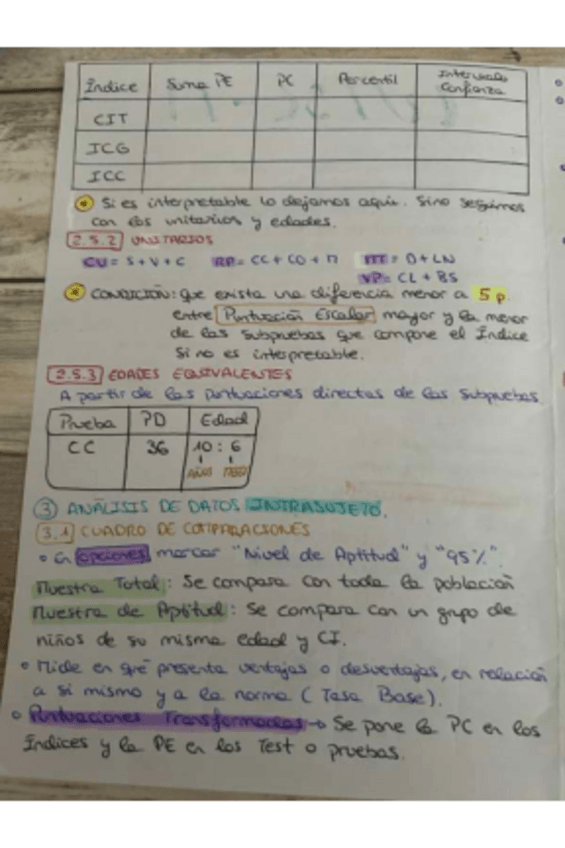 Índice Suma PE PC Percentil Intervalo Confianza
CIT
ICG
ICC
* Si es interpretable lo dejamos aquí. Sino seguimos
con los unitarios y edades.
2.5.2 UNITARIOS
CV = S + V + C RP = CC + CO + M MT = D + LN
VP = CL + BS
* CONDICIÓN: Que exista una diferencia menor a 5 p.
entre Puntuación Escalar mayor y la menor
de las subpruebas que compone el Índice
Si no es interpretable.
2.5.3 EDADES EQUIVALENTES
A partir de las puntuaciones directas de las subpruebas.
Prueba PD Edad
CC 36 10 : 6
AÑOS MESES
3 ANÁLISIS DE DATOS INTRASUJETO.
3.1 CUADRO DE COMPARACIONES
• En opciones marcar "Nivel de Aptitud" y "95%".
Muestra Total: Se compara con toda la población
Muestra de Aptitud: Se compara con un grupo de
niños de su misma edad y CI.
• Mide en qué presenta ventajas o desventajas, en relación
a si mismo y a la norma (Tasa Base).
• Puntuaciones Transformadas → Se pone la PC en los
Índices y la PE en los Test o pruebas.